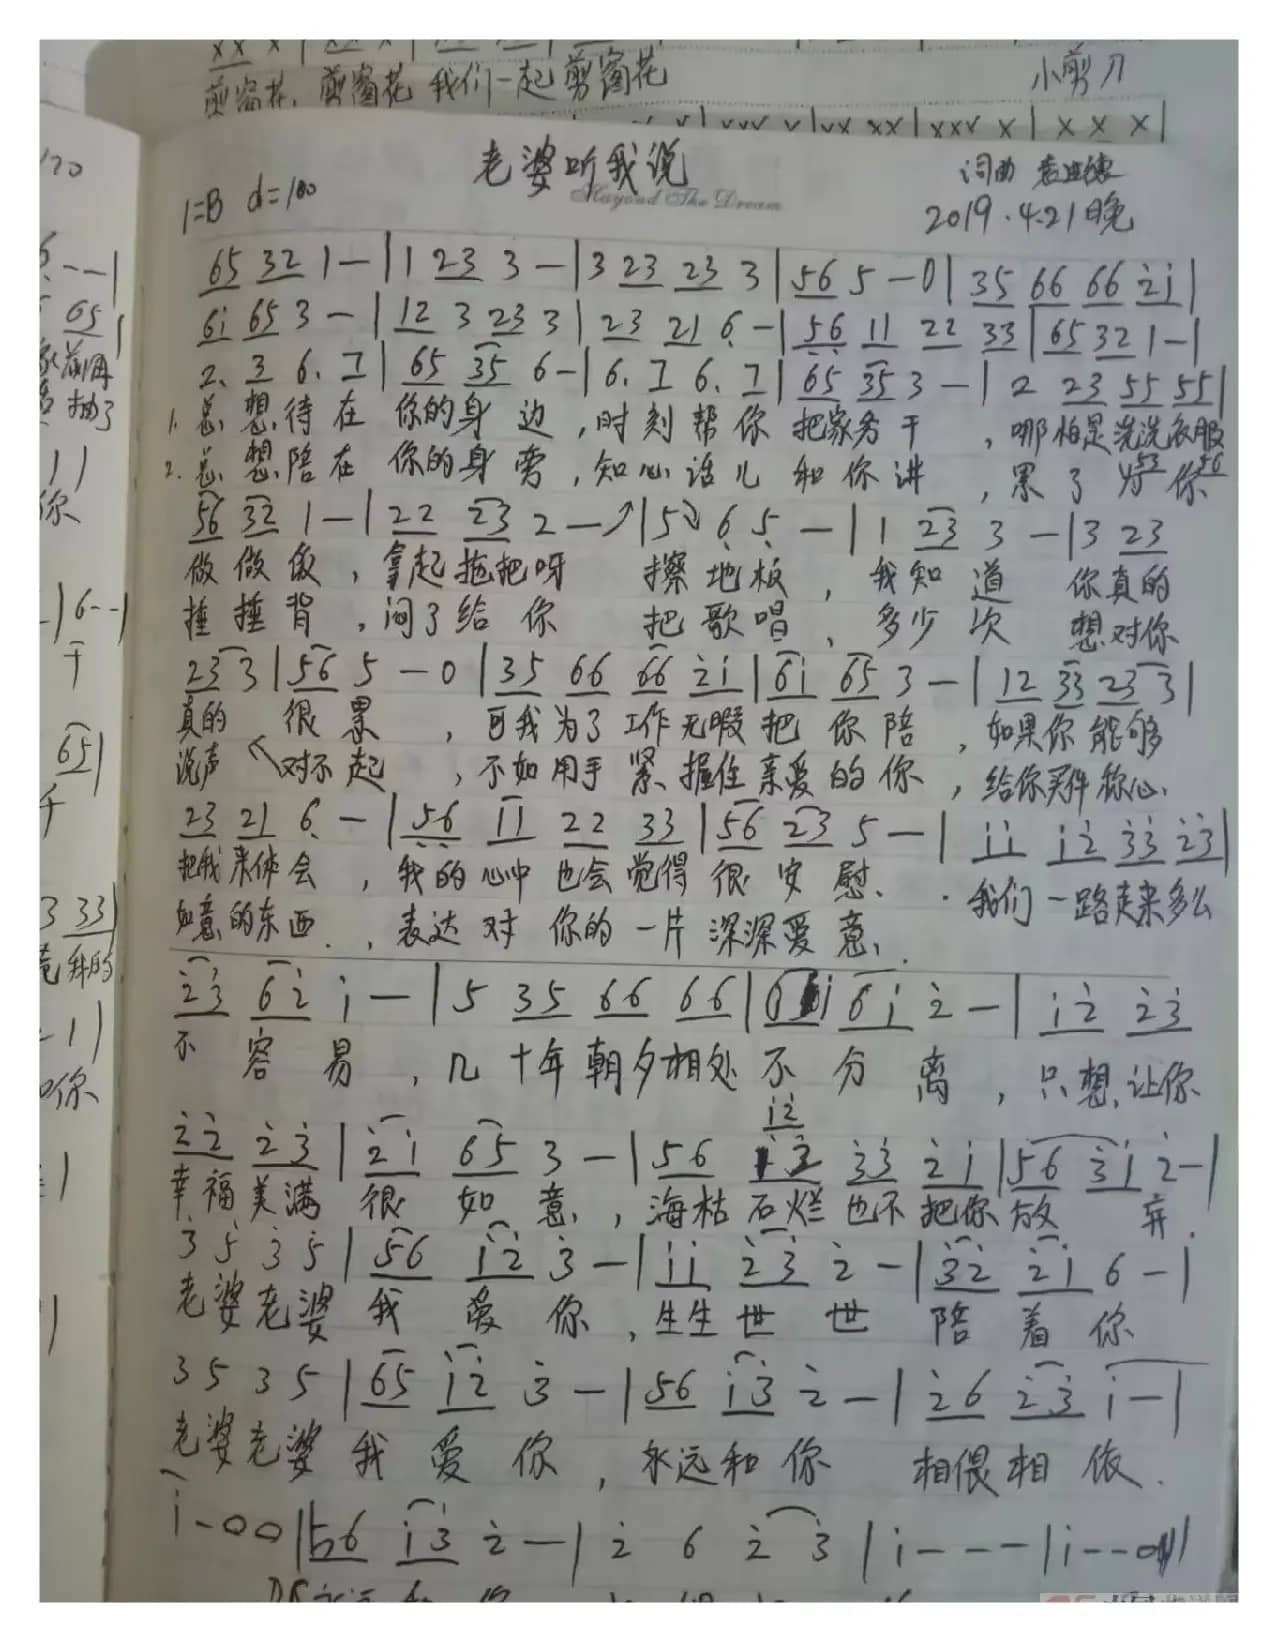 剪窗花，剪窗花 我们一起剪窗花 小剪刀
老婆听我说
Mayond The Dream
1=B ♩=100 词曲
2019.4.21晚
65 32 1 - | 1 23 3 - | 3 23 23 3 | 56 5 - 0 | 35 66 66 2̇1̇ |
61̇ 65 3 - | 12 3 23 3 | 23 21 6̣ - | 5̣6̣ 11 22 33 | 65 32 1 - |
2. 3 6. 7 | 65 35 6 - | 6. 7 6. 7 | 65 35 3 - | 2 23 55 55 |
1. 总想待在你的身边，时刻帮你把家务干，哪怕是洗洗衣服
2. 总想陪在你的身旁，知心话儿和你讲，累了为你
56 32 1 - | 22 23 2 - | 5 6̣ 5̣ - | 1 23 3 - | 3 23
做做饭，拿起拖把呀擦地板，我知道你真的
捶捶背，闷了给你把歌唱，多少次想对你
23 3 | 56 5 - 0 | 35 66 66 2̇1̇ | 61̇ 65 3 - | 12 33 23 3 |
真的很累，可我为了工作无暇把你陪，如果你能够
说声对不起，不如用手紧握住亲爱的你，给你买件称心
23 21 6̣ - | 5̣6̣ 11 22 33 | 56 23 5 - | 1̇1̇ 1̇2̇ 3̇3̇ 2̇3̇ |
把我来体会，我的心中也会觉得很安慰。我们一路走来多么
如意的东西，表达对你的一片深深爱意，
2̇3̇ 62̇ 1̇ - | 5 35 66 66 | 61̇ 61̇ 2̇ - | 1̇2̇ 2̇3̇
不容易，几十年朝夕相处不分离，只想让你
1̇2̇
2̇2̇ 2̇3̇ | 2̇1̇ 65 3 - | 56 3̇3̇ 2̇1̇ | 56 3̇1̇ 2̇ - |
幸福美满很如意，海枯石烂也不把你放弃.
3̇ 5̇ 3̇ 5̇ | 56 1̇2̇ 3̇ - | 1̇1̇ 2̇3̇ 2̇ - | 3̇2̇ 2̇1̇ 6 - |
老婆老婆我爱你，生生世世陪着你
3 5 3 5 | 65 1̇2̇ 3̇ - | 56 1̇3̇ 2̇ - | 2̇6 2̇3̇ 1̇ - |
老婆老婆我爱你，永远和你相偎相依.
1̇ - 0 0 | 56 1̇3̇ 2̇ - | 2̇ 6 2̇ 3̇ | 1̇ - - - | 1̇ - - 0 |